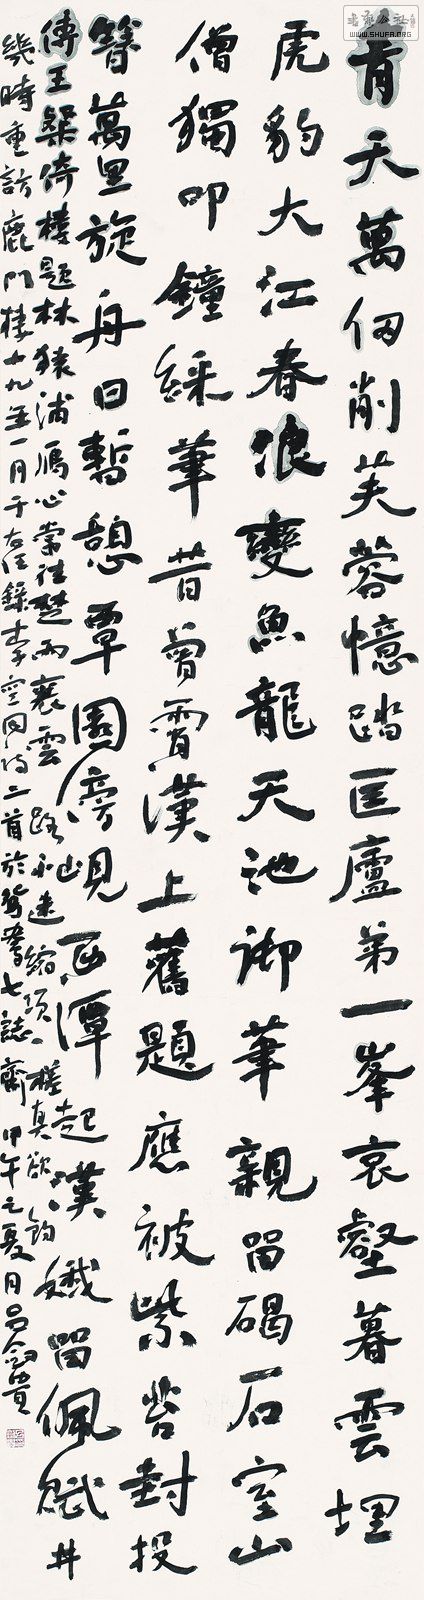 书法公社
WWW.SHUFA.ORG
青天萬仞削芙蓉憶踏匡廬第一峯哀壑暮雲埋
虎豹大江春浪變魚龍天池御筆親留碣石室山
僧獨叩鐘綵筆昔曾霄漢上舊題應被紫苔封投
簪萬里旋舟日暫憩覃園傍峴西潭起漢孅留佩賦井
傳王粲倚樓題林猿浦雁心常往楚雨襄雲路不迷縮項槎真欲釣
幾時重訪鹿門棲十九年一月于右任錄李空同詩二首於鴛鴦七誌齋甲午之夏月